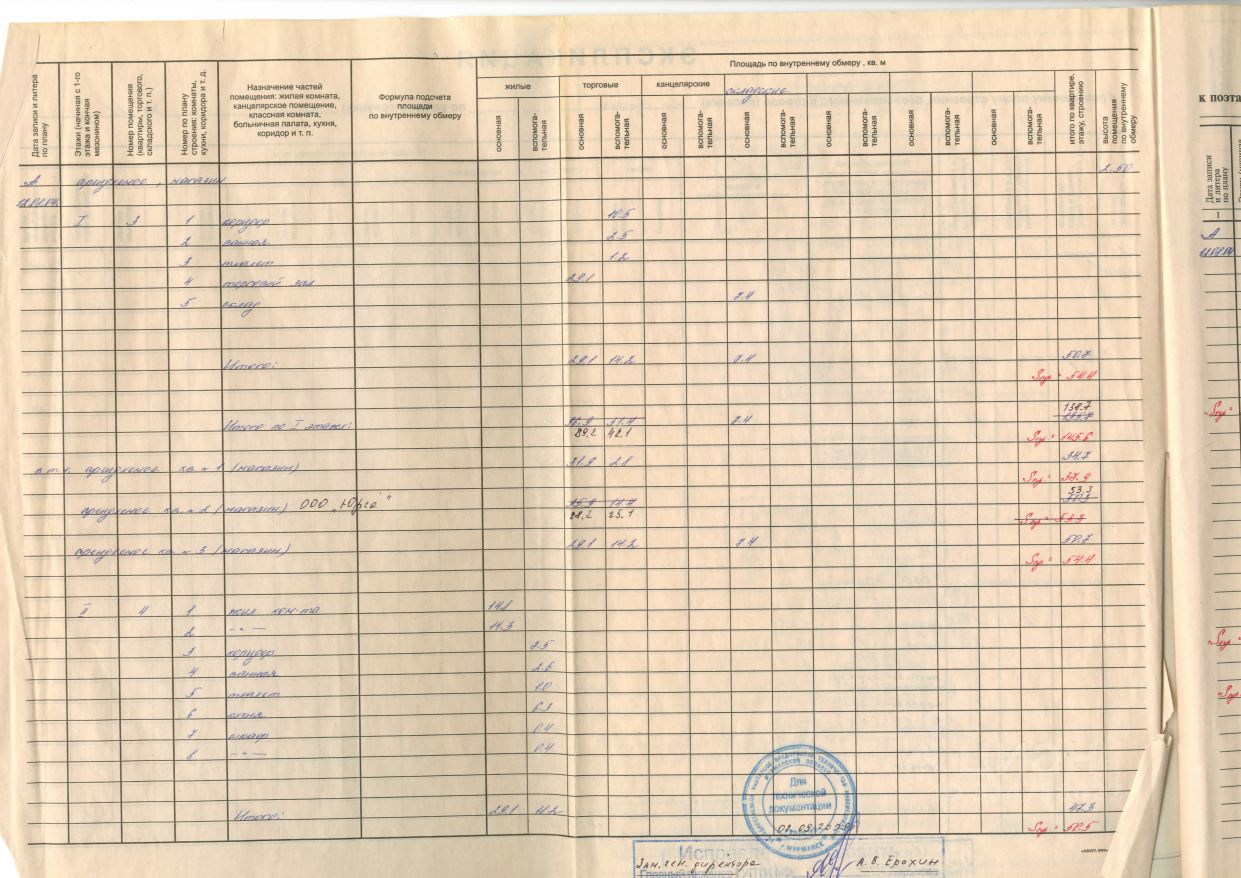 ЭКСПЛИКАЦИЯ
Дата записи и литера по плану
Этажи (начиная с 1-го этажа и кончая мезонином)
Номер помещения (квартиры, торгового, складского и т. п.)
Номер по плану строения: комнаты, кухни, коридора и т. д.
Назначение частей помещения: жилая комната, канцелярское помещение, классная комната, больничная палата, кухня, коридор и т. п.
Формула подсчета площади по внутреннему обмеру
Площадь по внутреннему обмеру , кв. м
жилые торговые канцелярские складские
основная вспомога-тельная основная вспомога-тельная основная вспомога-тельная основная вспомога-тельная основная вспомога-тельная основная вспомога-тельная основная вспомога-тельная
итого по квартире, этажу, строению
высота помещения по внутреннему обмеру
А арендуемое, магазин 2.50
I 3 1 коридор 10.5
2 ванная 2.5
3 туалет 1.2
4 торговый зал 29.1
5 склад 7.4
Итого: 29.1 14.2 7.4 50.7
Sпр = 54.4
138.7
Итого по I этажу: 7.4
89.2 42.1
Sпр = 145.6
в т.ч. арендуемое кв. № 1 (магазин) 31.9 2.8 34.7
Sпр = 37.9
53.3
арендуемое кв. № 2 (магазин) ООО „Юрга" 14.4
28.2 25.1
Sпр =
арендуемое кв. № 3 (магазин) 29.1 14.2 7.4 50.7
Sпр = 54.4
II 4 1 жил. ком-та 14.8
2 -"- 14.3
3 коридор
4 ванная 2.6
5 туалет 1.0
6 кухня 6.3
7 шкаф 0.4
8 -"- 0.4
Итого: 29.1
Sпр =
Для технической документации
г. МУРМАНСК
Зам. ген. директора А. В. Ерохин
к поэта
Дата записи и литера по плану
1
А
Sпр =
Sпр
Sпр